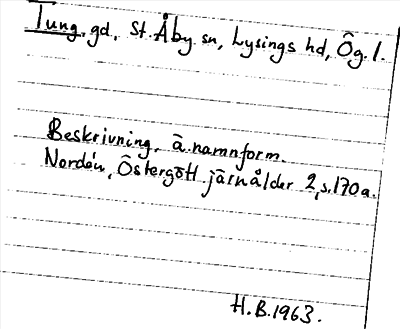 Tung, gd, St. Åby sn, Lysings hd, Ög. l.
Beskrivning, ä. namnform.
Nordén, Östergötl järnålder 2, s. 170 a.
H.B. 1963.